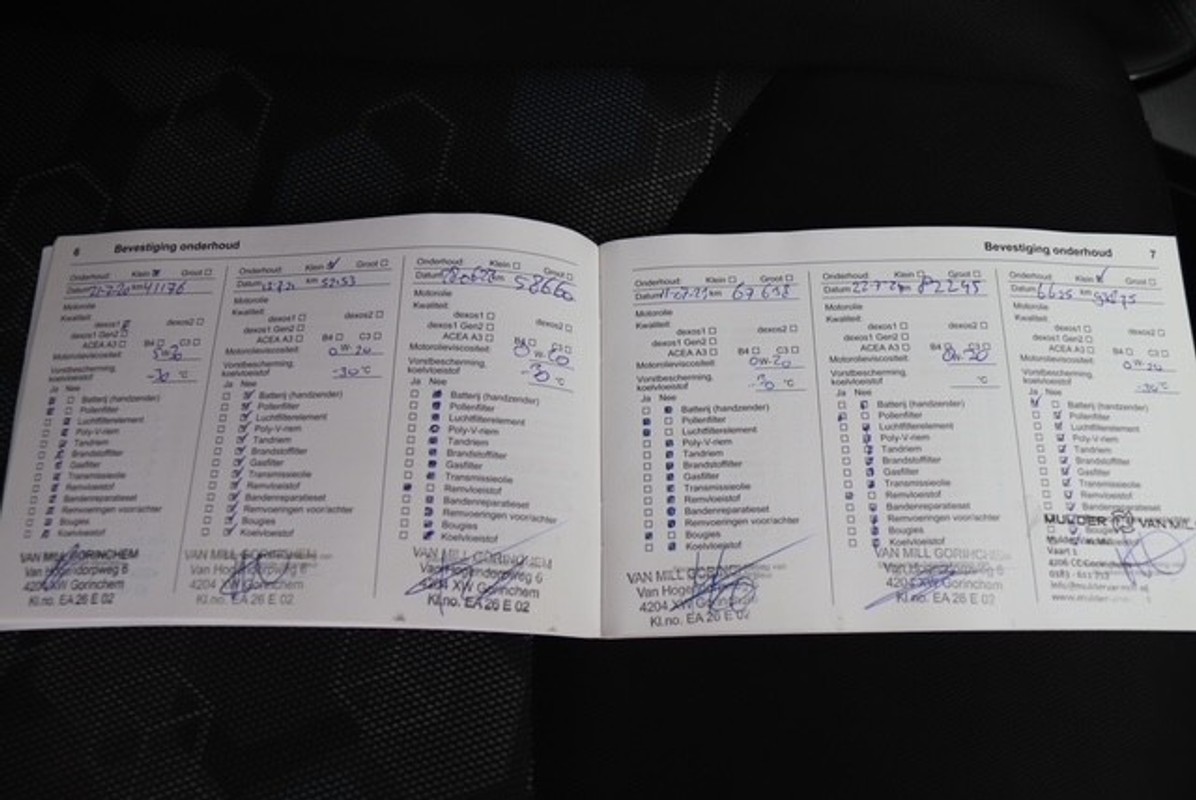 6 Bevestiging onderhoud
Onderhoud: Klein Groot
Datum 21-7-20 km 41176
Motorolie
Kwaliteit:
dexos1 dexos2
dexos1 Gen2
ACEA A3 B4 C3
Motorolieviscositeit:
Vorstbescherming,
koelvloeistof -30 °C
Ja Nee
Batterij (handzender)
Pollenfilter
Luchtfilterelement
Poly-V-riem
Tandriem
Brandstoffilter
Gasfilter
Transmissieolie
Remvloeistof
Bandenreparatieset
Remvoeringen voor/achter
Bougies
Koelvloeistof
VAN MILL GORINCHEM
Van Hogendorpweg 6
4204 XW Gorinchem
Kl.no. EA 26 E 02
Onderhoud: Klein Groot
Datum km
Motorolie
Kwaliteit:
dexos1 dexos2
dexos1 Gen2
ACEA A3 B4 C3
Motorolieviscositeit: 0W-20
Vorstbescherming,
koelvloeistof -30 °C
Ja Nee
Batterij (handzender)
Pollenfilter
Luchtfilterelement
Poly-V-riem
Tandriem
Brandstoffilter
Gasfilter
Transmissieolie
Remvloeistof
Bandenreparatieset
Remvoeringen voor/achter
Bougies
Koelvloeistof
VAN MILL GORINCHEM
4204 XW Gorinchem
Kl.no. EA 26 E 02
Onderhoud: Klein Groot
Datum km 58660
Motorolie
Kwaliteit:
dexos1 dexos2
dexos1 Gen2
ACEA A3 B4 C3
Motorolieviscositeit: 0W-20
Vorstbescherming,
koelvloeistof -30 °C
Ja Nee
Batterij (handzender)
Pollenfilter
Luchtfilterelement
Poly-V-riem
Tandriem
Brandstoffilter
Gasfilter
Transmissieolie
Remvloeistof
Bandenreparatieset
Remvoeringen voor/achter
Bougies
Koelvloeistof
VAN MILL GORINCHEM
Van Hogendorpweg 6
4204 XW Gorinchem
Kl.no. EA 26 E 02
Bevestiging onderhoud 7
Onderhoud: Klein Groot
Datum km 67618
Motorolie
Kwaliteit:
dexos1 dexos2
dexos1 Gen2
ACEA A3 B4 C3
Motorolieviscositeit: 0W-20
Vorstbescherming,
koelvloeistof -30 °C
Ja Nee
Batterij (handzender)
Pollenfilter
Luchtfilterelement
Poly-V-riem
Tandriem
Brandstoffilter
Gasfilter
Transmissieolie
Remvloeistof
Bandenreparatieset
Remvoeringen voor/achter
Bougies
Koelvloeistof
VAN MILL GORINCHEM
4204 XW Gorinchem
Kl.no. EA 26 E 02
Onderhoud: Klein Groot
Datum 22-7-24 km 82245
Motorolie
Kwaliteit:
dexos1 dexos2
dexos1 Gen2
ACEA A3 B4 C3
Motorolieviscositeit: 0W-20
Vorstbescherming,
koelvloeistof °C
Ja Nee
Batterij (handzender)
Pollenfilter
Luchtfilterelement
Poly-V-riem
Tandriem
Brandstoffilter
Gasfilter
Transmissieolie
Remvloeistof
Bandenreparatieset
Remvoeringen voor/achter
Bougies
Koelvloeistof
VAN MILL GORINCHEM
Van Hogendorpweg 6
4204 XW Gorinchem
Kl.no. EA 26 E 02
Onderhoud: Klein Groot
Datum km
Motorolie
Kwaliteit:
dexos1 dexos2
dexos1 Gen2
ACEA A3 B4 C3
Motorolieviscositeit: 0W-20
Vorstbescherming,
koelvloeistof -30 °C
Ja Nee
Batterij (handzender)
Pollenfilter
Luchtfilterelement
Poly-V-riem
Tandriem
Brandstoffilter
Gasfilter
Transmissieolie
Remvloeistof
Bandenreparatieset
MULDER VAN MIL
Vaart 1